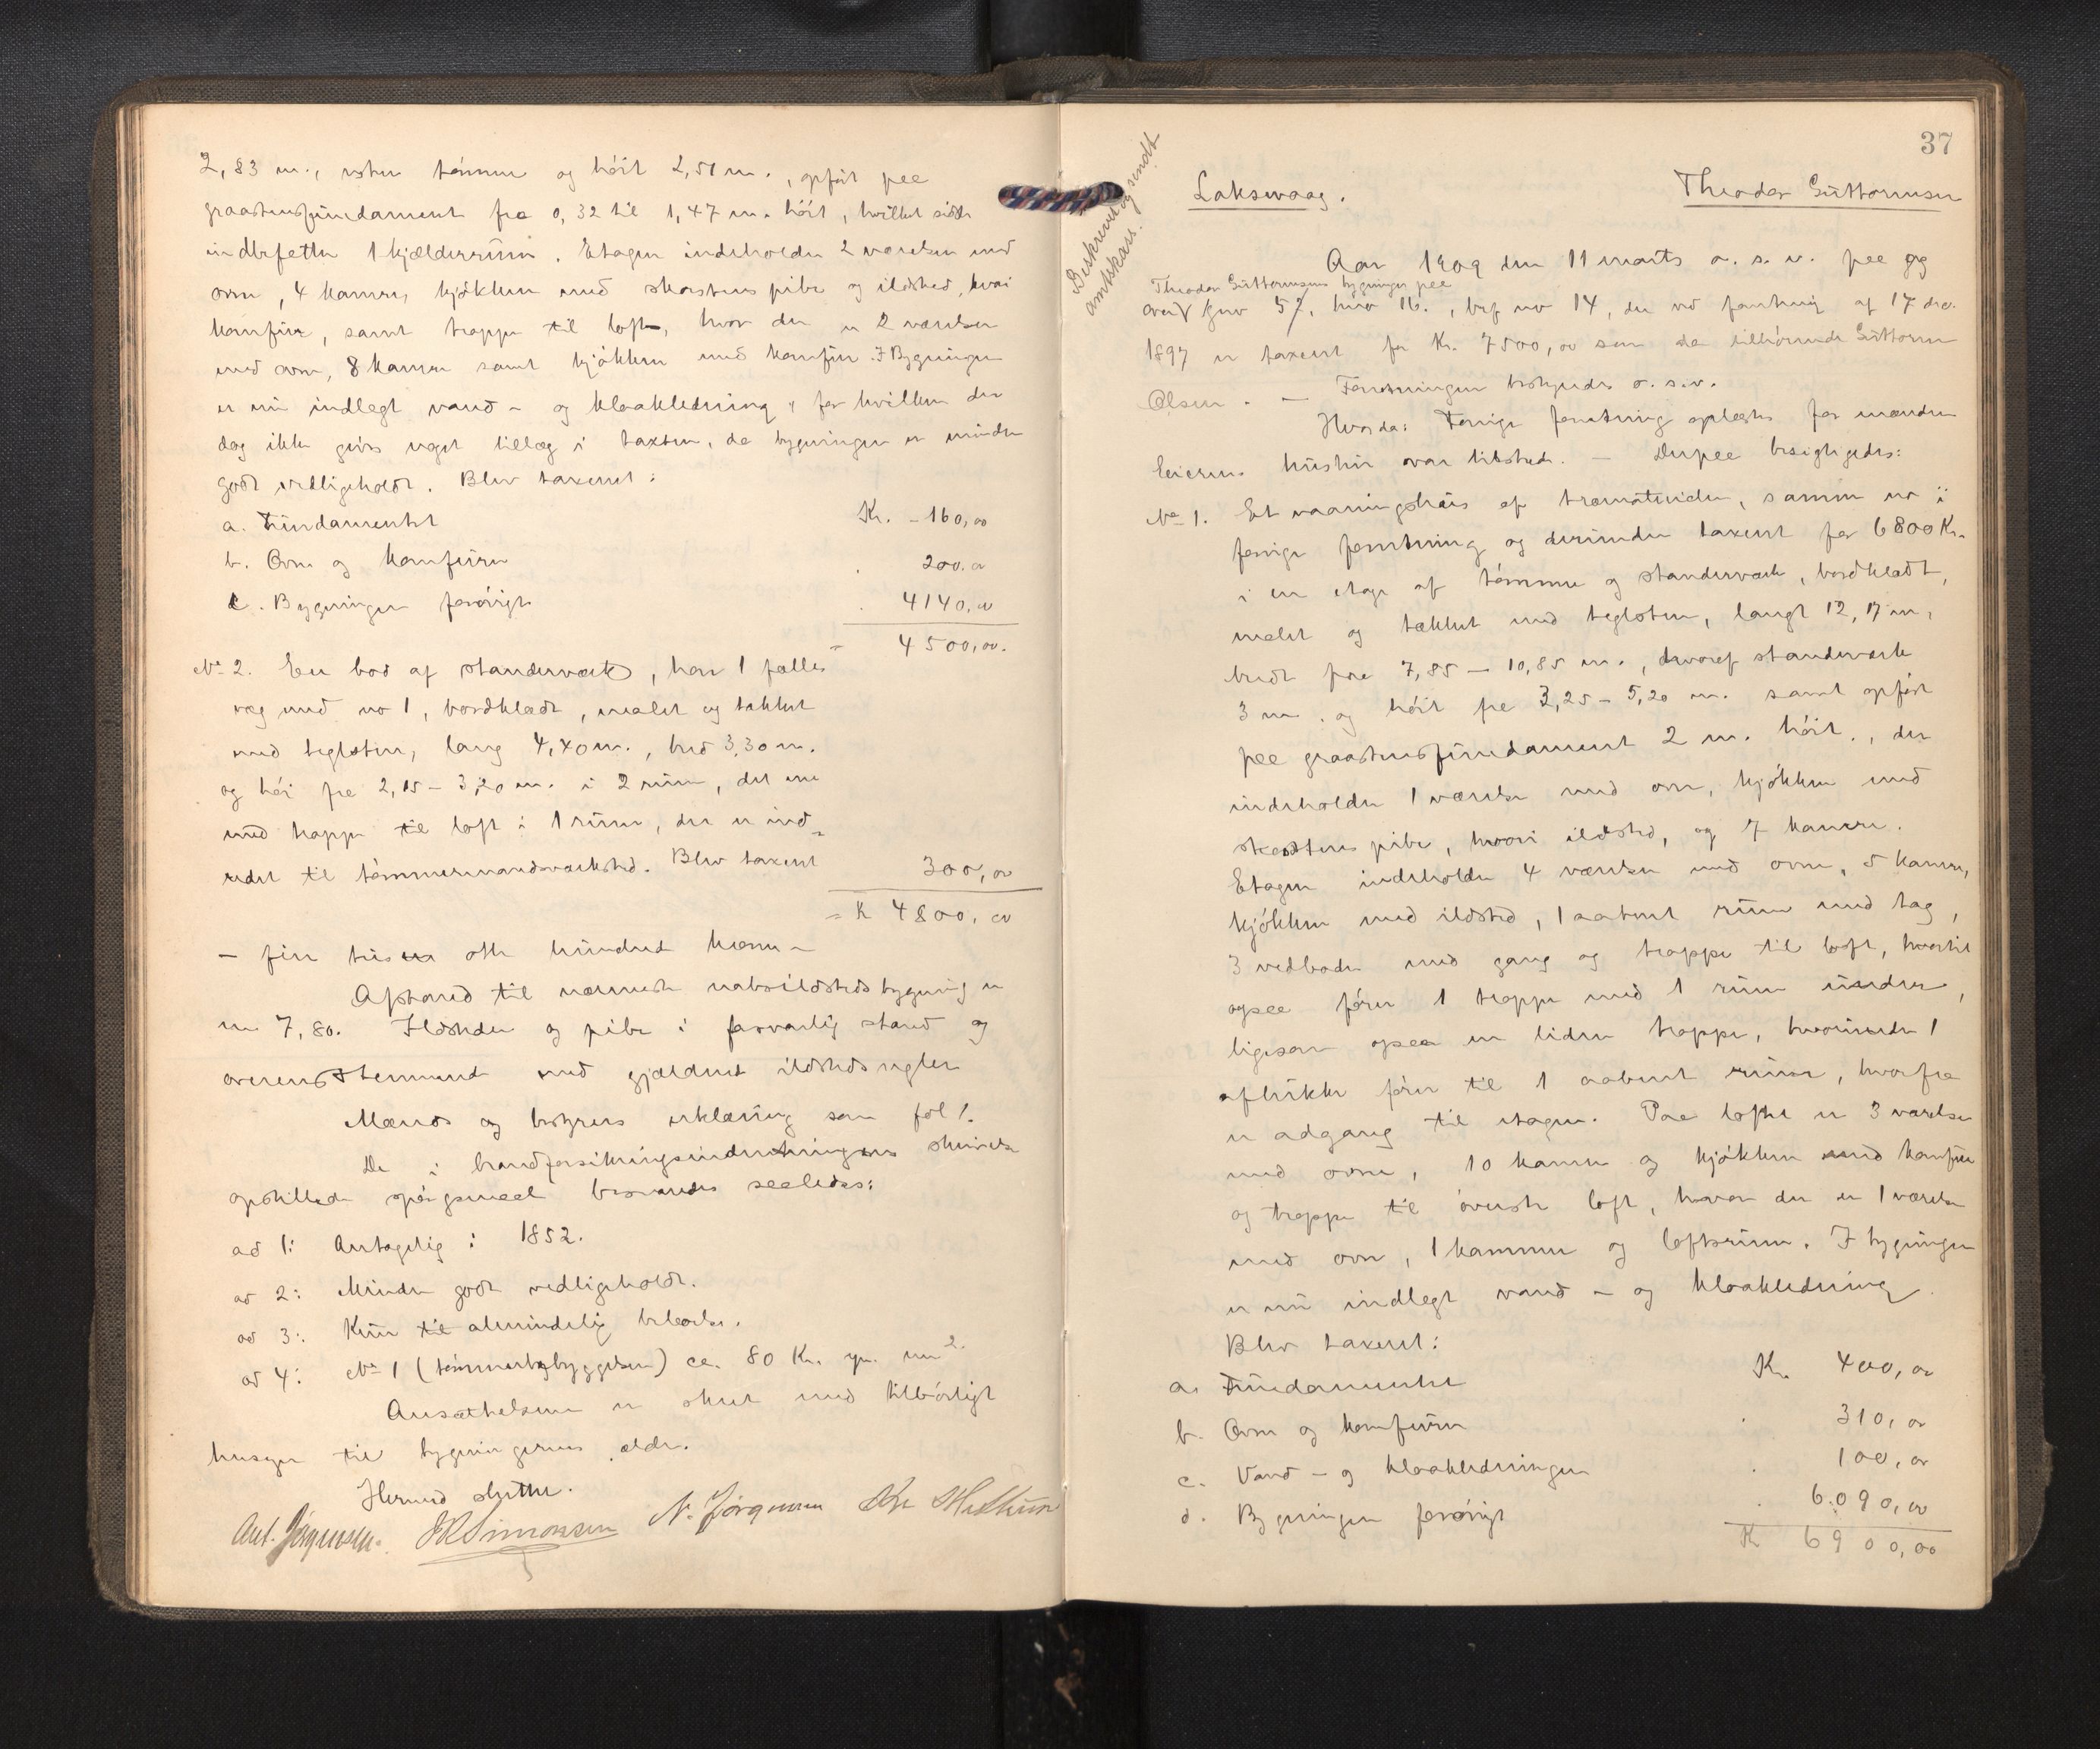 2,83 m., resten tømmer og høit 2,51 m., opført paa
graastensfundament fra 0,32 til 1,47 m. høit, hvilket sidste
indbefatter 1 kjælderrum. Etagen indeholder 2 værelser med
ovn, 4 kamre, kjøkken med skorstenspibe og ildsted, hvori
komfur, samt trappe til loft, hvor der er 2 værelser
med ovn, 8 kamre samt kjøkken med komfur. I Bygningen
er nu indlagt vand- og kloakledning, for hvilken der
dog ikke gives noget tillæg i taxten, da bygningen er mindre
godt vedligeholdt. Blev taxeret:
a. Fundamentet Kr. 160,00
b. Ovne og komfurer 200.00
c. Bygningen forøvrigt 4140,00
= 4500,00.
No 2. En bod af standerværk, har 1 fælles
væg med no 1, bordklædt, malet og tækket
med teglsten, lang 4,40 m., bred 3,30 m.
og høi fra 2,15 - 3,20 m. i 2 rum, det ene
med trappe til loft i 1 rum, der er ind-
redet til tømmermandsværksted. Blev taxeret 300,00
= K 4800,00
- fire tusen otte hundred kroner -
Afstand til nærmeste naboildstedsbygning er
m 7,80. Ildsteder og pibe i forsvarlig stand og
overensstemmende med gjældende ildstedsregler
Mænds og bestyrers erklæring som fol 1.
De i brandforsikringsindretningens skrivelse
opstillede spørgsmaal besvaredes saaledes:
ad 1: Antagelig i 1852.
ad 2: Mindre godt vedligeholdt.
ad 3: Kun til almindelig beboelse.
ad 4: No 1 (tømmerbebyggelsen) ca. 80 Kr. pr. m2.
Ansættelsen er skeet med tilbørligt
hensyn til bygningernes ælde.
Hermed sluttet.
Ant. Jørgensen. JRSimonsen N. Jørgensen
37
Beskrevet og sendt
amtskass.
Laksevaag. Theodor Guttormsen
Aar 1909 den 11 marts o. s. v. paa og
over Theodor Guttormsens bygninger paa gnr 52, bnr 16., brf no 14, der ved forretning af 17 dec.
1897 er taxeret for Kr. 7500,00 som da tilhørende Guttorm
Olsen. - Forretningen bestyredes o. s. v.
Hvorda: Forrige forretning oplæstes for mænden
Eierens hustru var tilstede. - Derpaa besigtigedes:
No 1. Et vaaningshus af træmaterialer, samme no i
forrige forretning og derunder taxeret for 6800 Kr.
i en etage af tømmer og standerværk, bordklædt,
malet og tækket med teglsten, langt 12,17 m,
bredt fra 7,85 - 10,85 m., hvoraf standerværk
3 m. og høit fra 3,25 - 5,20 m. samt opført
paa graastensfundament 2 m. høit., der
indeholder 1 værelse med ovn, kjøkken med
skorstenspibe, hvori ildsted, og 7 kamre.
Etagen indeholder 4 værelser med ovn, 5 kamre,
kjøkken med ildsted, 1 aabent rum med tag,
3 vedboder med gang og trappe til loft, hvortil
ogsaa fører 1 trappe med 1 rum under,
ligesom ogsaa en liden trappe, hvorunder 1
aflukke fører til 1 aabent rum, hvorfra
er adgang til etagen. Paa loftet er 3 værelser
med ovne, 10 kamre og kjøkken med komfur
og trappe til øverste loft, hvor der er 1 værelse
med ovn, 1 kammer og loftsrum. I bygningen
er nu indlagt vand- og kloakledning.
Blev taxeret:
a. Fundamentet Kr. 400,00
b. Ovne og komfurer 310,00
c. Vand- og kloakledningen 100,00
d. Bygningen forøvrigt 6.090,00
K 6900,00